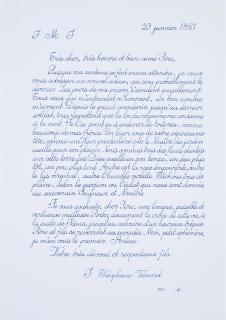 20 janvier 1861
J M J
Très cher, très honoré et bien-aimé Père,
Puisque ma sentence se fait encore attendre, je veux
vous adresser un nouvel adieu, qui sera probablement le
dernier. Les jours de ma prison s'écoulent paisiblement.
Tous ceux qui m'entourent m'honorent, un bon nombre
m'aiment. Depuis le grand mandarin jusqu'au dernier
soldat, tous regrettent que la loi du royaume me condamne
à la mort. Je n'ai point eu à endurer de tortures, comme
beaucoup de mes frères. Un léger coup de sabre séparera ma
tête, comme une fleur printanière que le Maître du jardin
cueille pour son plaisir. Nous sommes tous des fleurs plantées
sur cette terre que Dieu cueille en son temps, un peu plus
tôt, un peu plus tard. Autre est la rose empourprée, autre
le lys virginal, autre l'humble violette. Tâchons tous de
plaire, selon le parfum ou l'éclat qui nous sont donnés,
au souverain Seigneur et Maître.
Je vous souhaite, cher Père, une longue, paisible et
vertueuse vieillesse. Portez doucement la croix de cette vie, à
la suite de Jésus, jusqu'au calvaire d'un heureux trépas.
Père et fils se reverront au paradis. Moi, petit éphémère,
je m'en vais le premier. Adieu.
Votre très dévoué et respectueux fils.
J. Théophane Vénard
m. s.